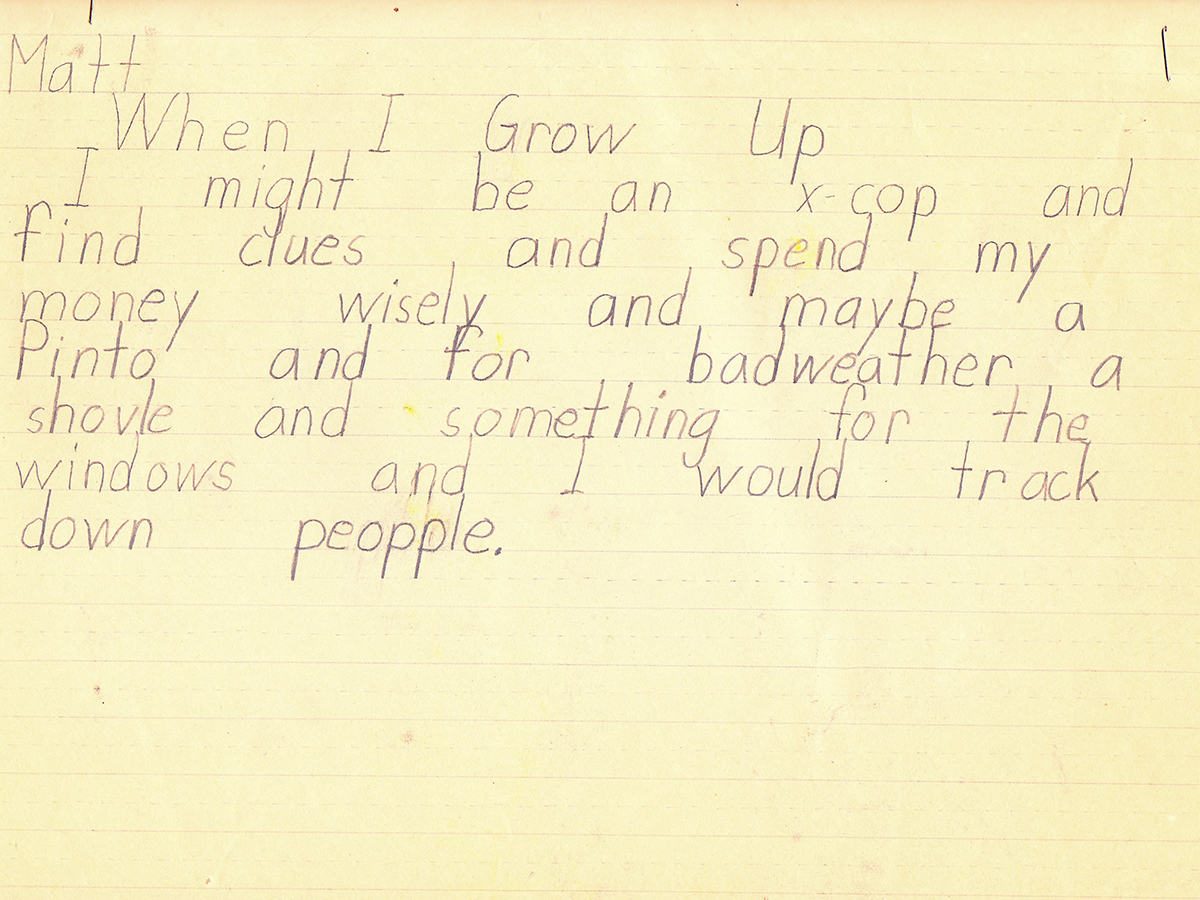 Matt
When I Grow Up
I might be an x-cop and
find clues and spend my
money wisely and maybe a
Pinto and for badweather a
shovle and something for the
windows and I would track
down peopple.